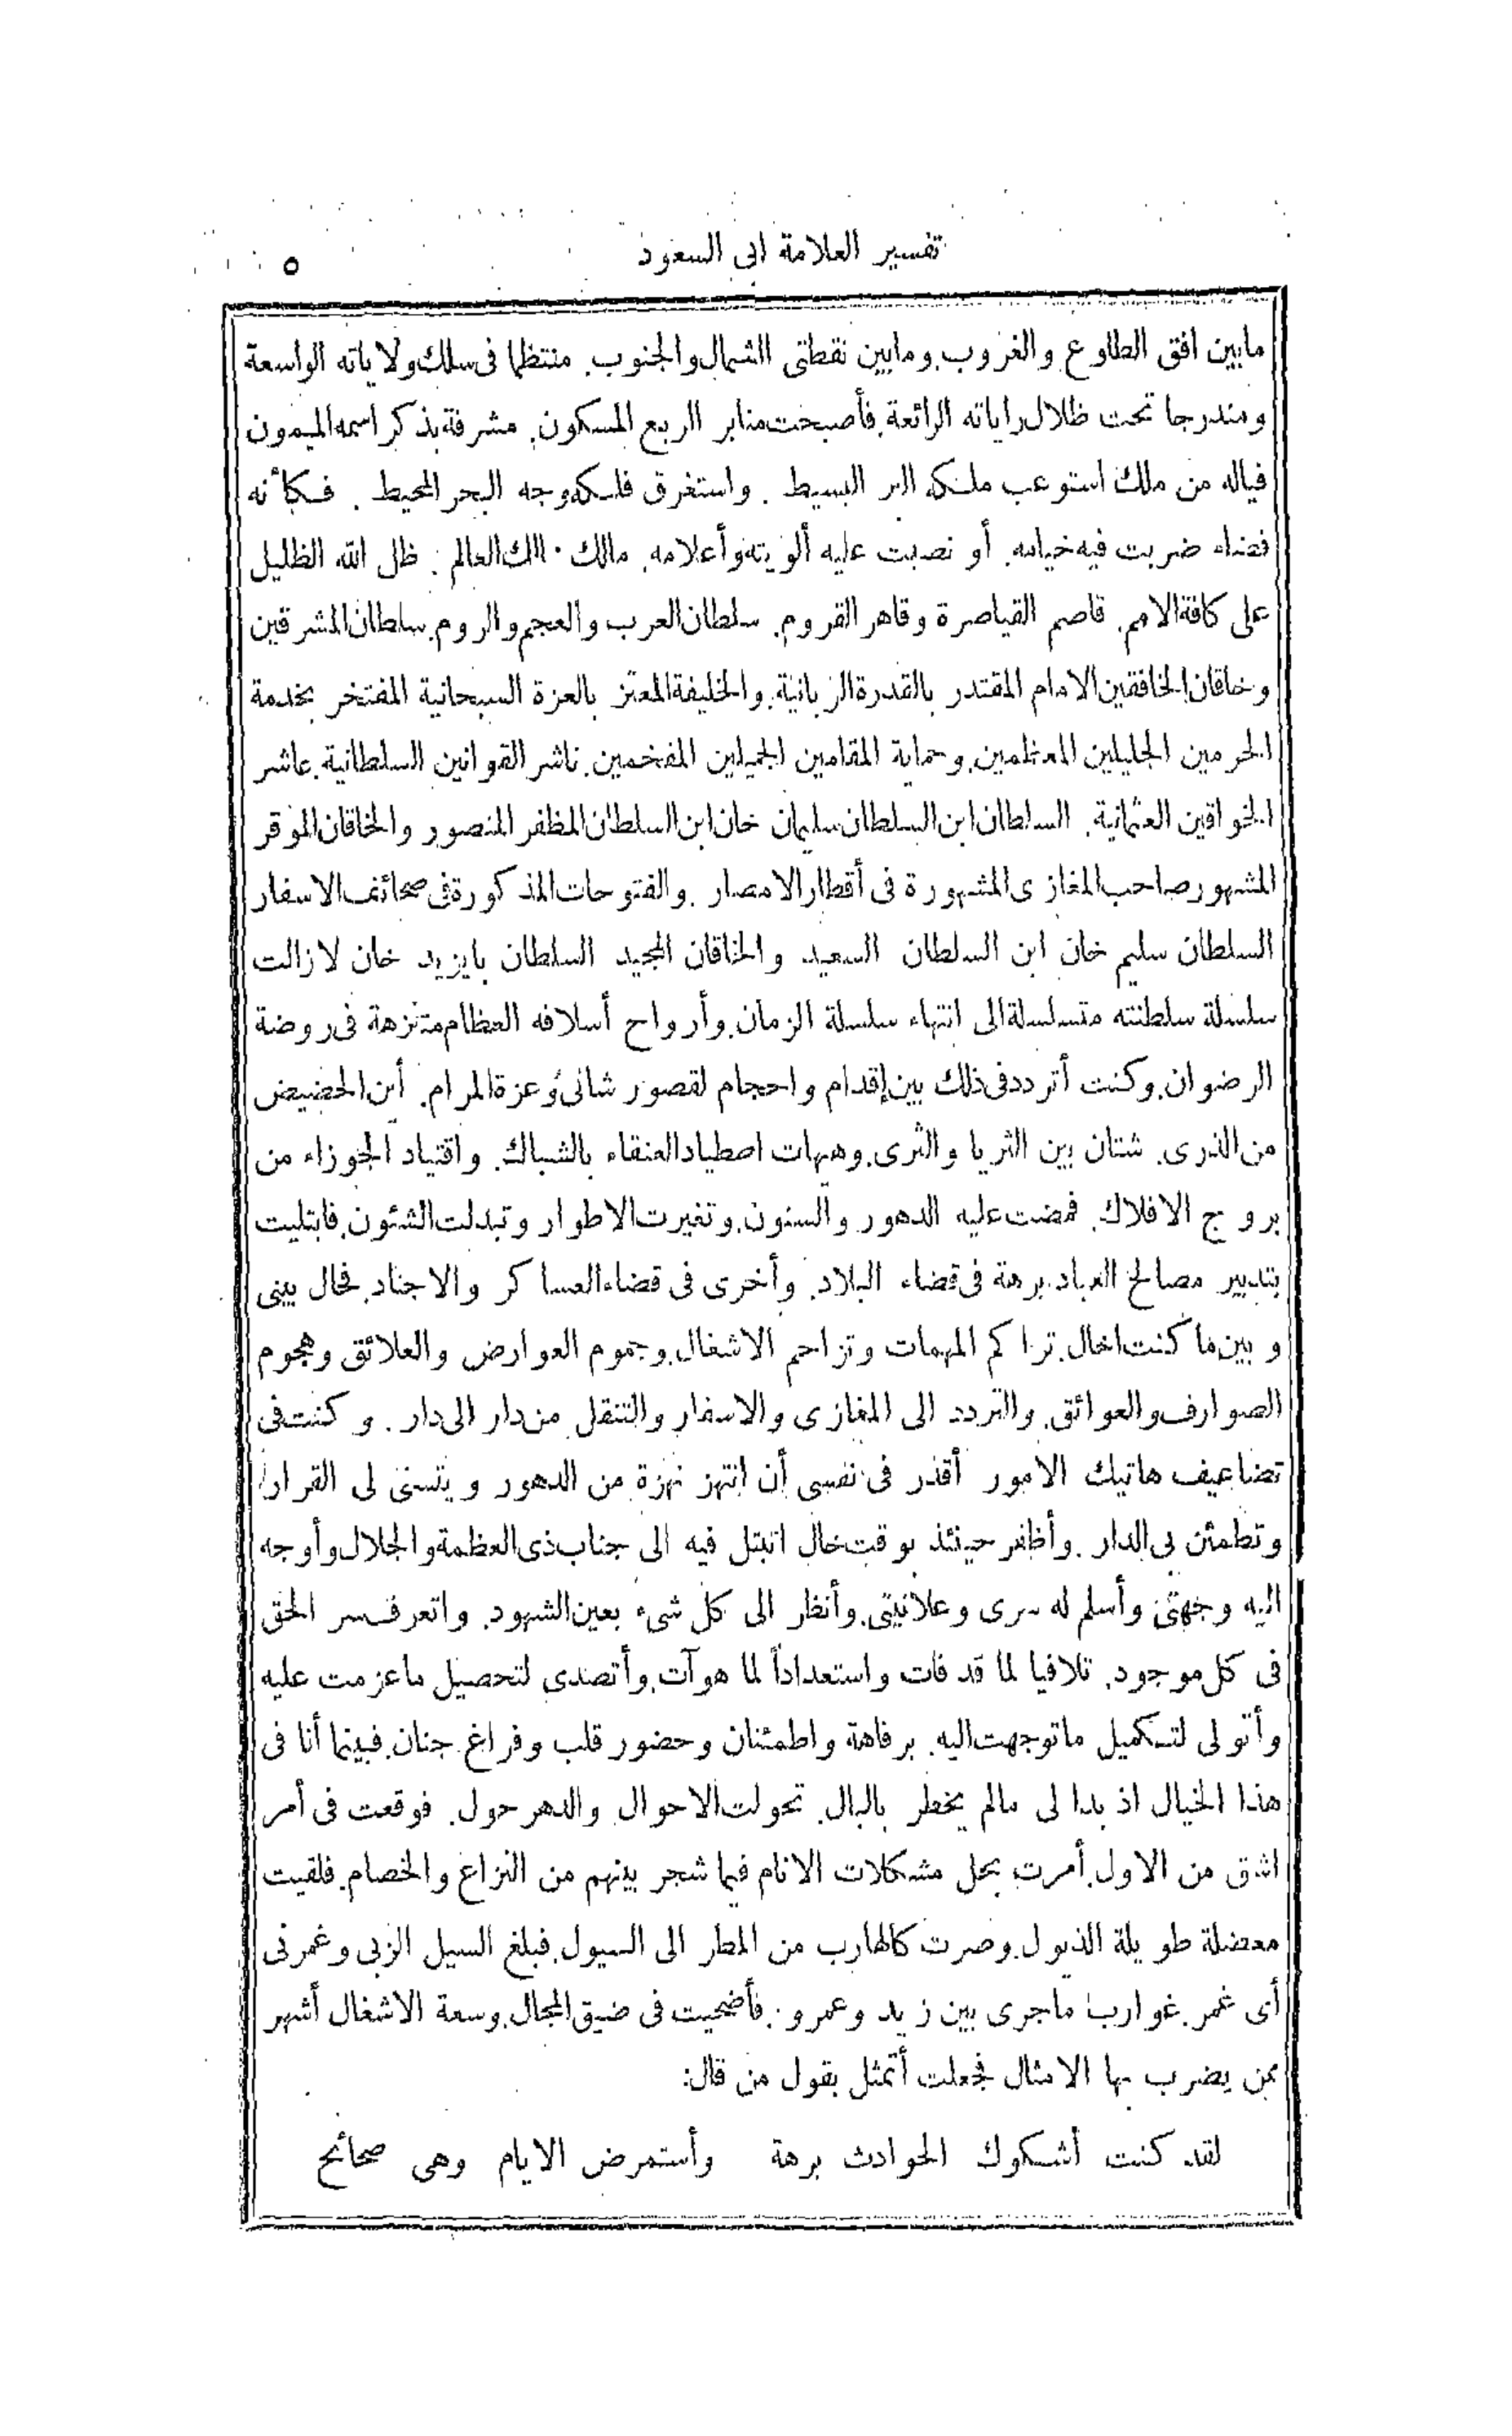 تفسير العلامة ابى السعود
٥
مابين افق الطلوع والغروب. ومابين نقطتى الشمال والجنوب. منتظما فى سلك ولاياته الواسعة
ومندرجا تحت ظلال راياته الرائعة. فأصبحت منابر الربع المسكون. مشرفة بذكر اسمه الميمون
فياله من ملك استوعب ملكه البر البسيط. واستغرق فلكه وجه البحر المحيط. فكأنه
فضاء ضربت فيه خيامه. أو نصبت عليه ألويته وأعلامه. مالك ممالك العالم. ظل الله الظليل
على كافة الامم. قاصم القياصرة وقاهر القروم. سلطان العرب والعجم والروم. سلطان المشرقين
وخاقان الخافقين الامام المقتدر بالقدرة الربانية. والخليفة المعتز بالعزة السبحانية المفتخر بخدمة
الحرمين الجليلين المعظمين. وحماية المقامين الجميلين المفخمين. ناشر القوانين السلطانية. عاشر
الخواقين العثمانية. السلطان ابن السلطان سليمان خان ابن السلطان المظفر المنصور والخاقان الموقر
المشهور صاحب المغازى المشهورة فى أقطار الامصار. والفتوحات المذكورة فى صحائف الاسفار
السلطان سليم خان ابن السلطان السعيد والخاقان المجيد السلطان بايزيد خان لازالت
سلسلة سلطنته متسلسلة الى انتهاء سلسلة الزمان. وأرواح أسلافه العظام متنزهة فى روضة
الرضوان. وكنت أتردد فى ذلك بين إقدام واحجام لقصور شانى وعزة المرام. أين الحضيض
من الذرى. شتان بين الثريا والثرى. وهيهات اصطياد العنقاء بالشباك. واقتياد الجوزاء من
بروج الافلاك. فمضت عليه الدهور والسنون. وتغيرت الاطوار وتبدلت الشئون. فابتليت
بتدبير مصالح العباد برهة فى قضاء البلاد. وأخرى فى قضاء العساكر والاجناد. فحال بينى
وبين ما كنت اخال. تراكم المهمات وتزاحم الاشغال. وجموم العوارض والعلائق وهجوم
الصوارف والعوائق. والتردد الى المغازى والاسفار والتنقل من دار الى دار. وكنت فى
تضاعيف هاتيك الامور أقدر فى نفسى أن انتهز نهزة من الدهور ويتسنى لى القرار
وتطمئن بى الدار. وأظفر حينئذ بوقت خال اتبتل فيه الى جناب ذى العظمة والجلال وأوجه
اليه وجهتى وأسلم له سرى وعلانيتى. وأنظر الى كل شىء بعين الشهود. واتعرف سر الحق
فى كل موجود. تلافيا لما قد فات واستعداداً لما هو آت. وأتصدى لتحصيل ماعزمت عليه
وأتولى لتكميل ماتوجهت اليه. برفاهة واطمئنان وحضور قلب وفراغ جنان. فبينما أنا فى
هذا الخيال اذ بدا لى مالم يخطر بالبال. تحولت الاحوال والدهر حول. فوقعت فى أمر
اشق من الاول. أمرت بحل مشكلات الانام فيما شجر بينهم من النزاع والخصام. فلقيت
معضلة طويلة الذيول. وصرت كالهارب من المطر الى السيول. فبلغ السيل الزبى وغمرنى
أى غمر. غوارب ماجرى بين زيد وعمرو. فأضحيت فى ضيق المجال. وسعة الاشغال أشهر
ممن يضرب بها الامثال فجعلت أتمثل بقول من قال:
لقد كنت أشكوك الحوادث برهة    وأستمرض الايام وهى صحائح